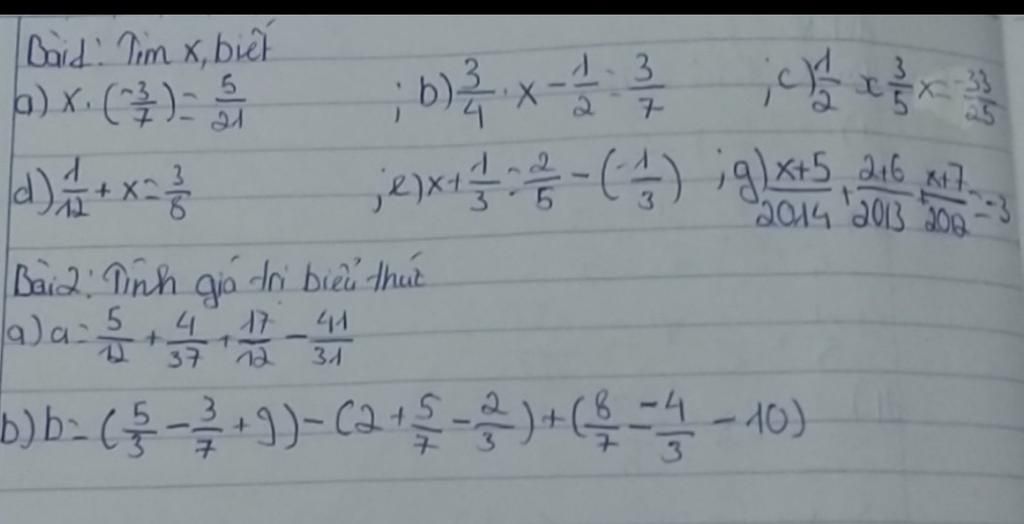 Bài 1: Tìm x, biết
a) x . (-3/7) = 5/21 ; b) 3/4 . x - 1/2 = 3/7 ; c) 1/2 x 3/5 x = -33/25
d) 1/12 + x = 3/8 ; e) x + 1/3 = 2/5 - (-1/3) ; g) x+5/2014 + 2+6/2013 + x+7/2012 = -3
Bài 2: Tính giá trị biểu thức
a) a = 5/12 + 4/37 + 17/12 - 41/31
b) b = (5/3 - 3/7 + 9) - (2 + 5/7 - 2/3) + (8/7 - -4/3 - 10)